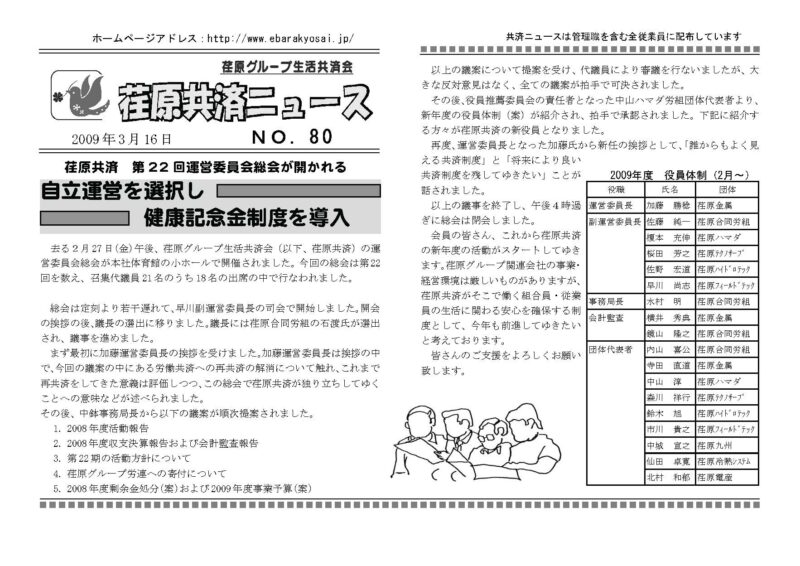 ホームページアドレス:http://www.ebarakyosai.jp/
荏原グループ生活共済会
荏原共済ニュース
2009年3月16日 NO. 80
荏原共済 第22回運営委員会総会が開かれる
自立運営を選択し
健康記念金制度を導入
去る2月27日(金)午後、荏原グループ生活共済会(以下、荏原共済)の運
営委員会総会が本社体育館の小ホールで開催されました。今回の総会は第22
回を数え、召集代議員21名のうち18名の出席の中で行なわれました。
総会は定刻より若干遅れて、早川副運営委員長の司会で開始しました。開会
の挨拶の後、議長の選出に移りました。議長には荏原合同労組の石渡氏が選出
され、議事を進めました。
まず最初に加藤運営委員長の挨拶を受けました。加藤運営委員長は挨拶の中
で、今回の議案の中にある労働共済への再共済の解消について触れ、これまで
再共済をしてきた意義は評価しつつ、この総会で荏原共済が独り立ちしてゆく
ことへの意味などが述べられました。
その後、中鉢事務局長から以下の議案が順次提案されました。
1. 2008年度活動報告
2. 2008年度収支決算報告および会計監査報告
3. 第22期の活動方針について
4. 荏原グループ労連への寄付について
5. 2008年度剰余金処分(案)および2009年度事業予算(案)
共済ニュースは管理職を含む全従業員に配布しています
以上の議案について提案を受け、代議員により審議を行ないましたが、大
きな反対意見はなく、全ての議案が拍手で可決されました。
その後、役員推薦委員会の責任者となった中山ハマダ労組団体代表者より、
新年度の役員体制(案)が紹介され、拍手で承認されました。下記に紹介す
る方々が荏原共済の新役員となりました。
再度、運営委員長となった加藤氏から新任の挨拶として、「誰からもよく見
える共済制度」と「将来により良い
共済制度を残してゆきたい」ことが
話されました。
以上の議事を終了し、午後4時過
ぎに総会は閉会しました。
会員の皆さん、これから荏原共済
の新年度の活動がスタートしてゆき
ます。荏原グループ関連会社の事業・
経営環境は厳しいものがありますが、
荏原共済がそこで働く組合員・従業
員の生活に関わる安心を確保する制
度として、今年も前進してゆきたい
と考えております。
皆さんのご支援をよろしくお願い
致します。
2009年度 役員体制(2月~)
役職 氏名 団体
運営委員長 加藤 勝稔 荏原金属
副運営委員長 佐藤 純一 荏原合同労組
榎本 充伸 荏原ハマダ
桜田 芳之 荏原テクノサーブ
佐野 宏道 荏原ハイドロテック
早川 尚志 荏原フィールドテック
事務局長 水村 明 荏原合同労組
会計監査 横井 秀典 荏原金属
鏡山 隆之 荏原合同労組
団体代表者 内山 喜公 荏原合同労組
寺田 直道 荏原金属
中山 淳 荏原ハマダ
森川 祥行 荏原テクノサーブ
鈴木 旭 荏原ハイドロテック
市川 貴之 荏原フィールドテック
中城 宣之 荏原九州
仙田 卓寛 荏原冷熱システム
北村 和郁 荏原電産